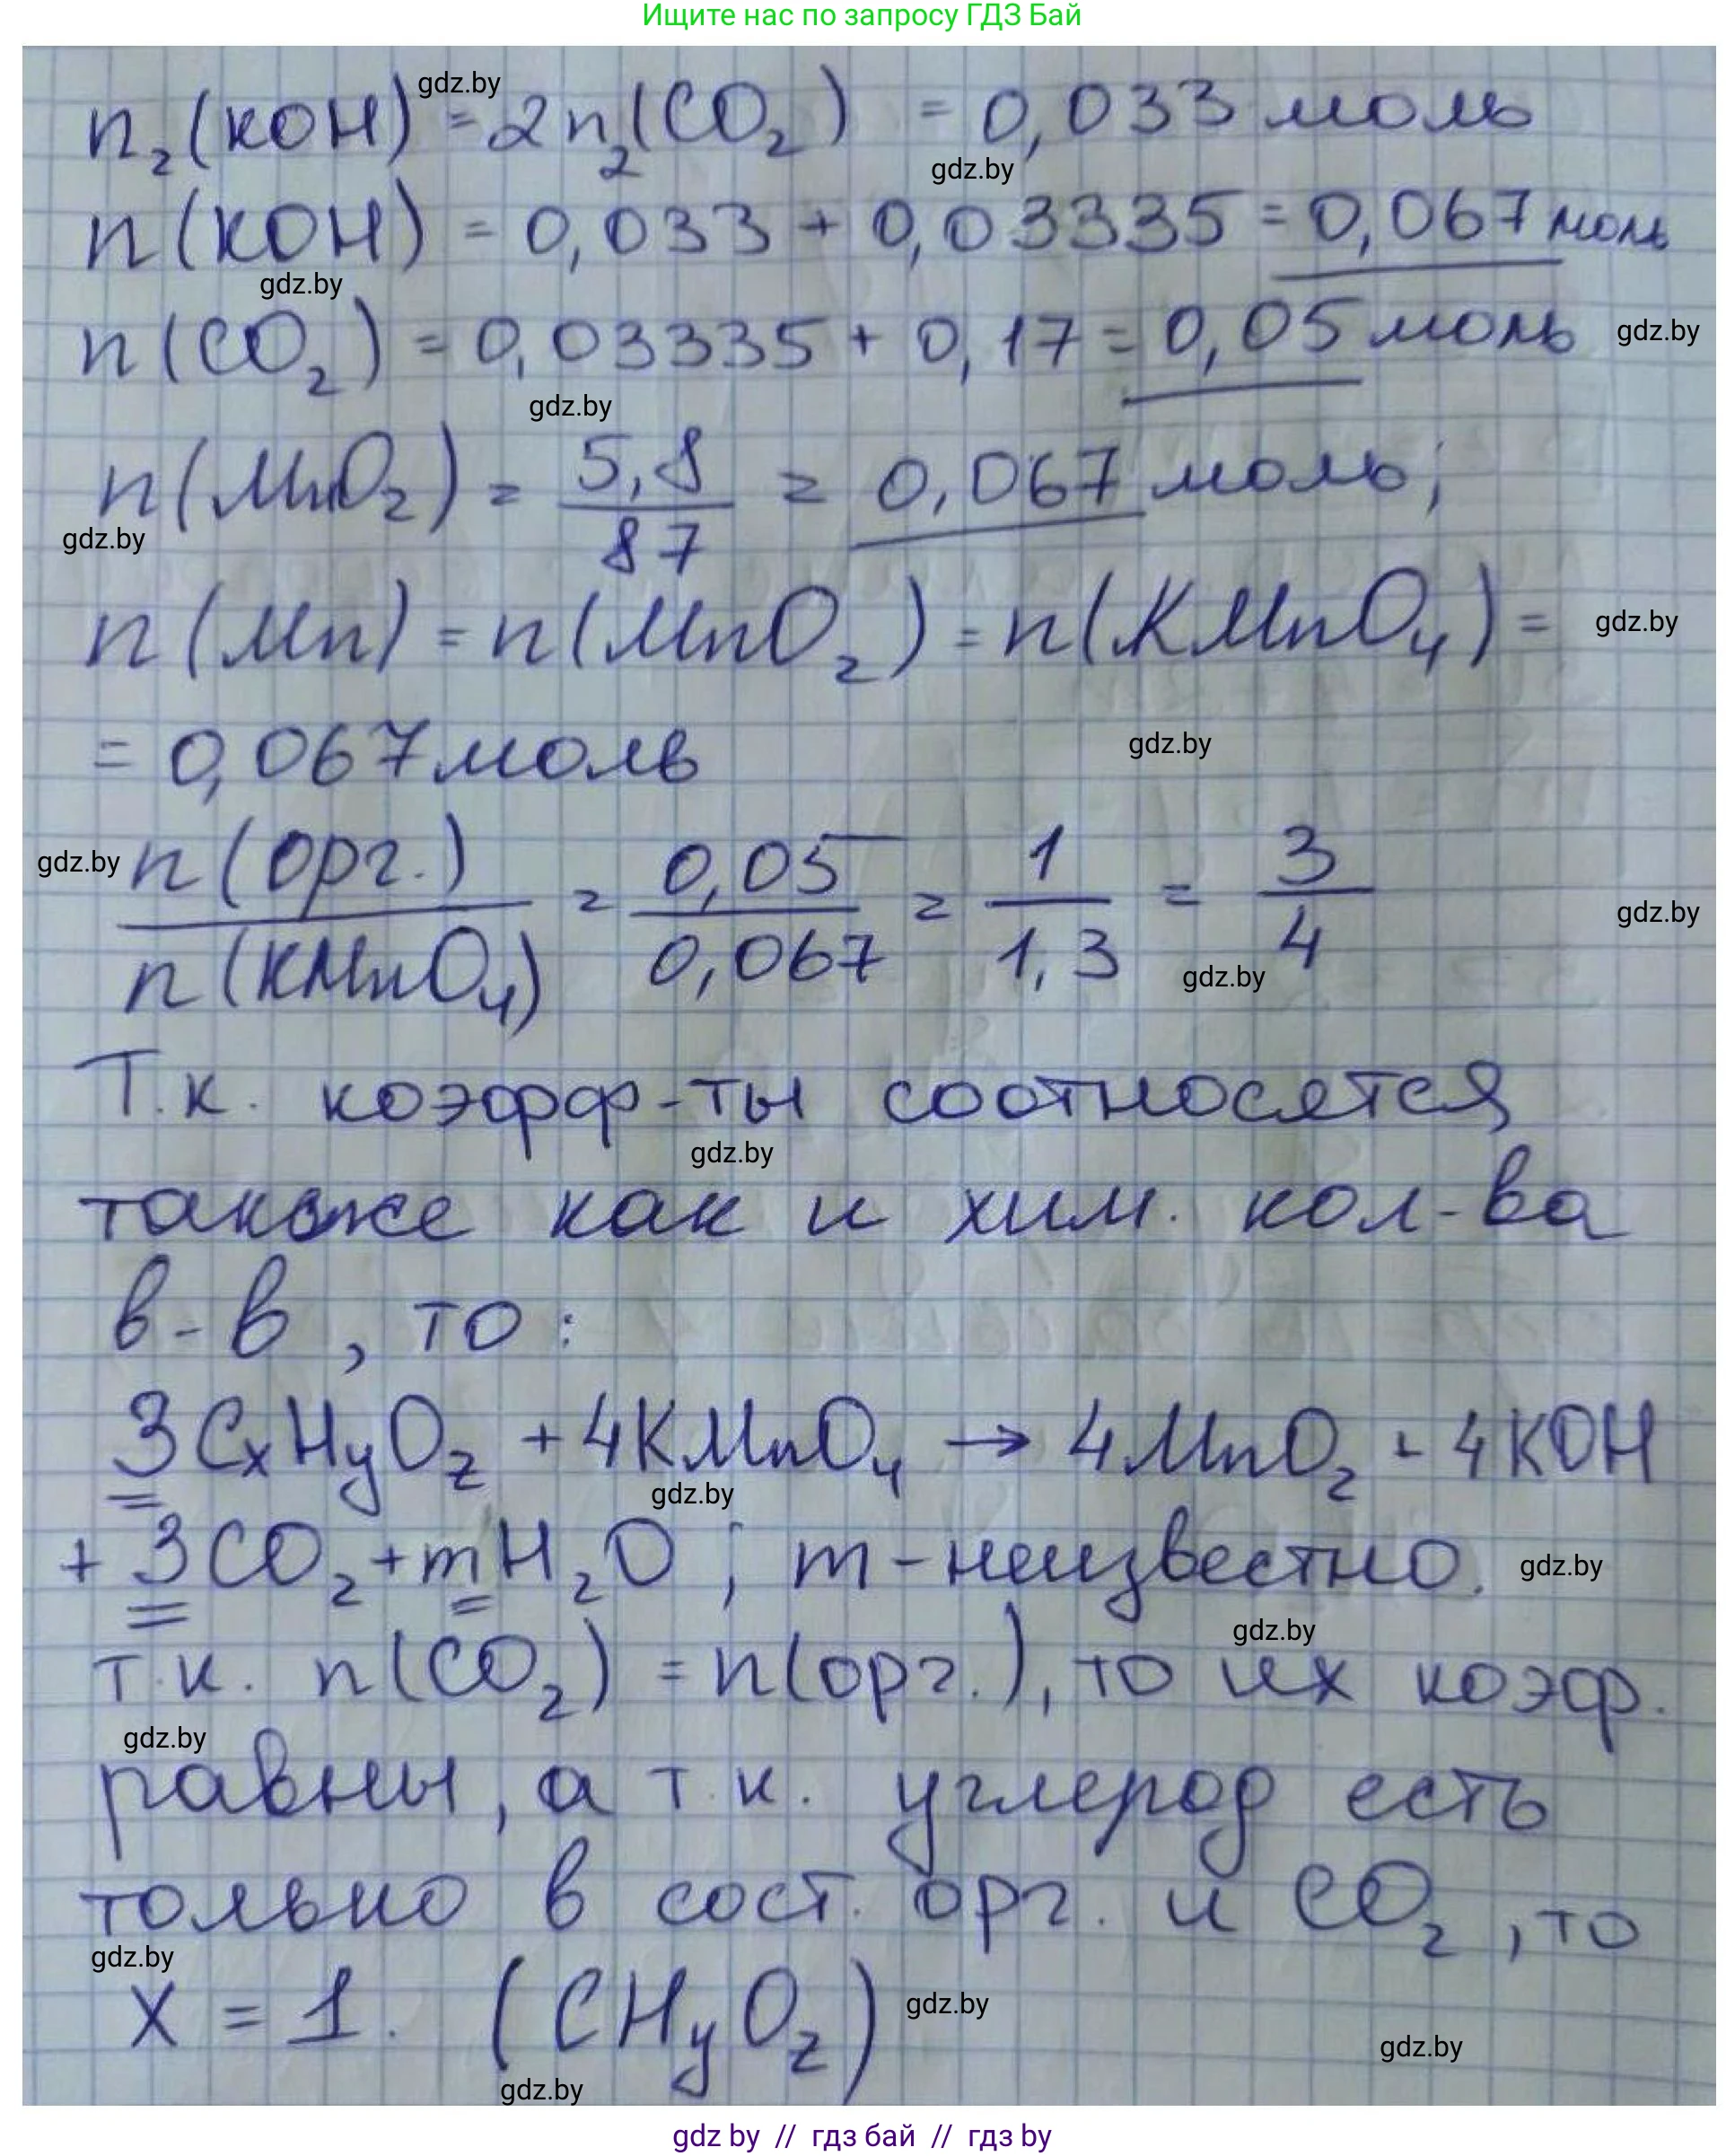 Ищите нас по запросу ГДЗ Бай
gdz.by
n₂(KOH) = 2n₂(CO₂) = 0,033 моль
gdz.by
n(KOH) = 0,033 + 0,03335 = 0,067 моль
gdz.by
n(CO₂) = 0,03335 + 0,17 = 0,05 моль gdz.by
gdz.by
n(MnO₂) = 5,8/87 = 0,067 моль;
gdz.by
n(Mn) = n(MnO₂) = n(KMnO₄) = gdz.by
= 0,067 моль gdz.by
gdz.by n(орг.)/n(KMnO₄) = 0,05/0,067 = 1/1,3 = 3/4 gdz.by
gdz.by
Т.к. коэфф-ты соотносятся
gdz.by
также как и хим. кол-ва
в-в, то:
3CxHyOz + 4KMnO₄ → 4MnO₂ + 4KOH
gdz.by
+ 3CO₂ + mH₂O; m – неизвестно. gdz.by
gdz.by
т.к. n(CO₂) = n(орг.), то их коэф.
gdz.by
равны, а т.к. углерод есть
только в сост. орг. и CO₂, то
gdz.by
x = 1. (CHyOz) gdz.by
gdz.by
gdz.by
gdz by // гдз бай // гдз by